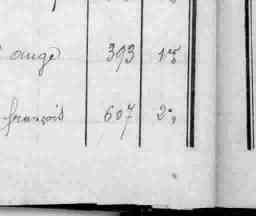 ange 393 1º5
françois 607 2º,